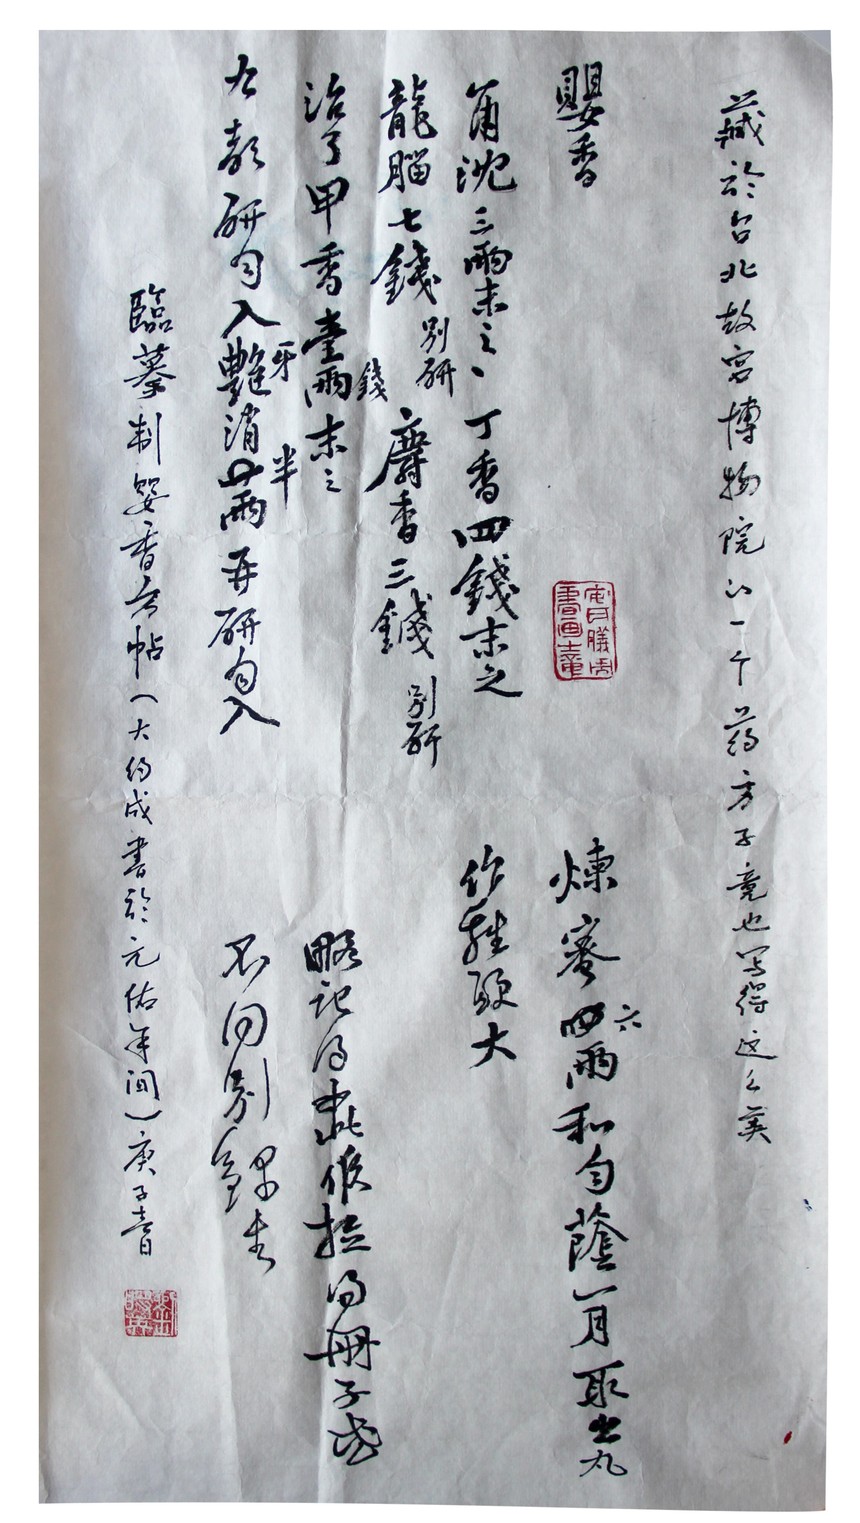 藏於台北故宫博物院的一个药方子竟也写得这么美
嬰香
角沈三兩末之、丁香四錢末之
龍腦七錢別研麝香三錢別研
治了甲香壹兩末之
錢
右都研勻入艷消廿兩再研勻入
牙
半
煉蜜四兩和勻蔭一月取出丸
六
作雞頭大
略記得如此候檢得冊子或
不同別錄去
臨摹制婴香方帖(大约成書於元佑年间)庚子